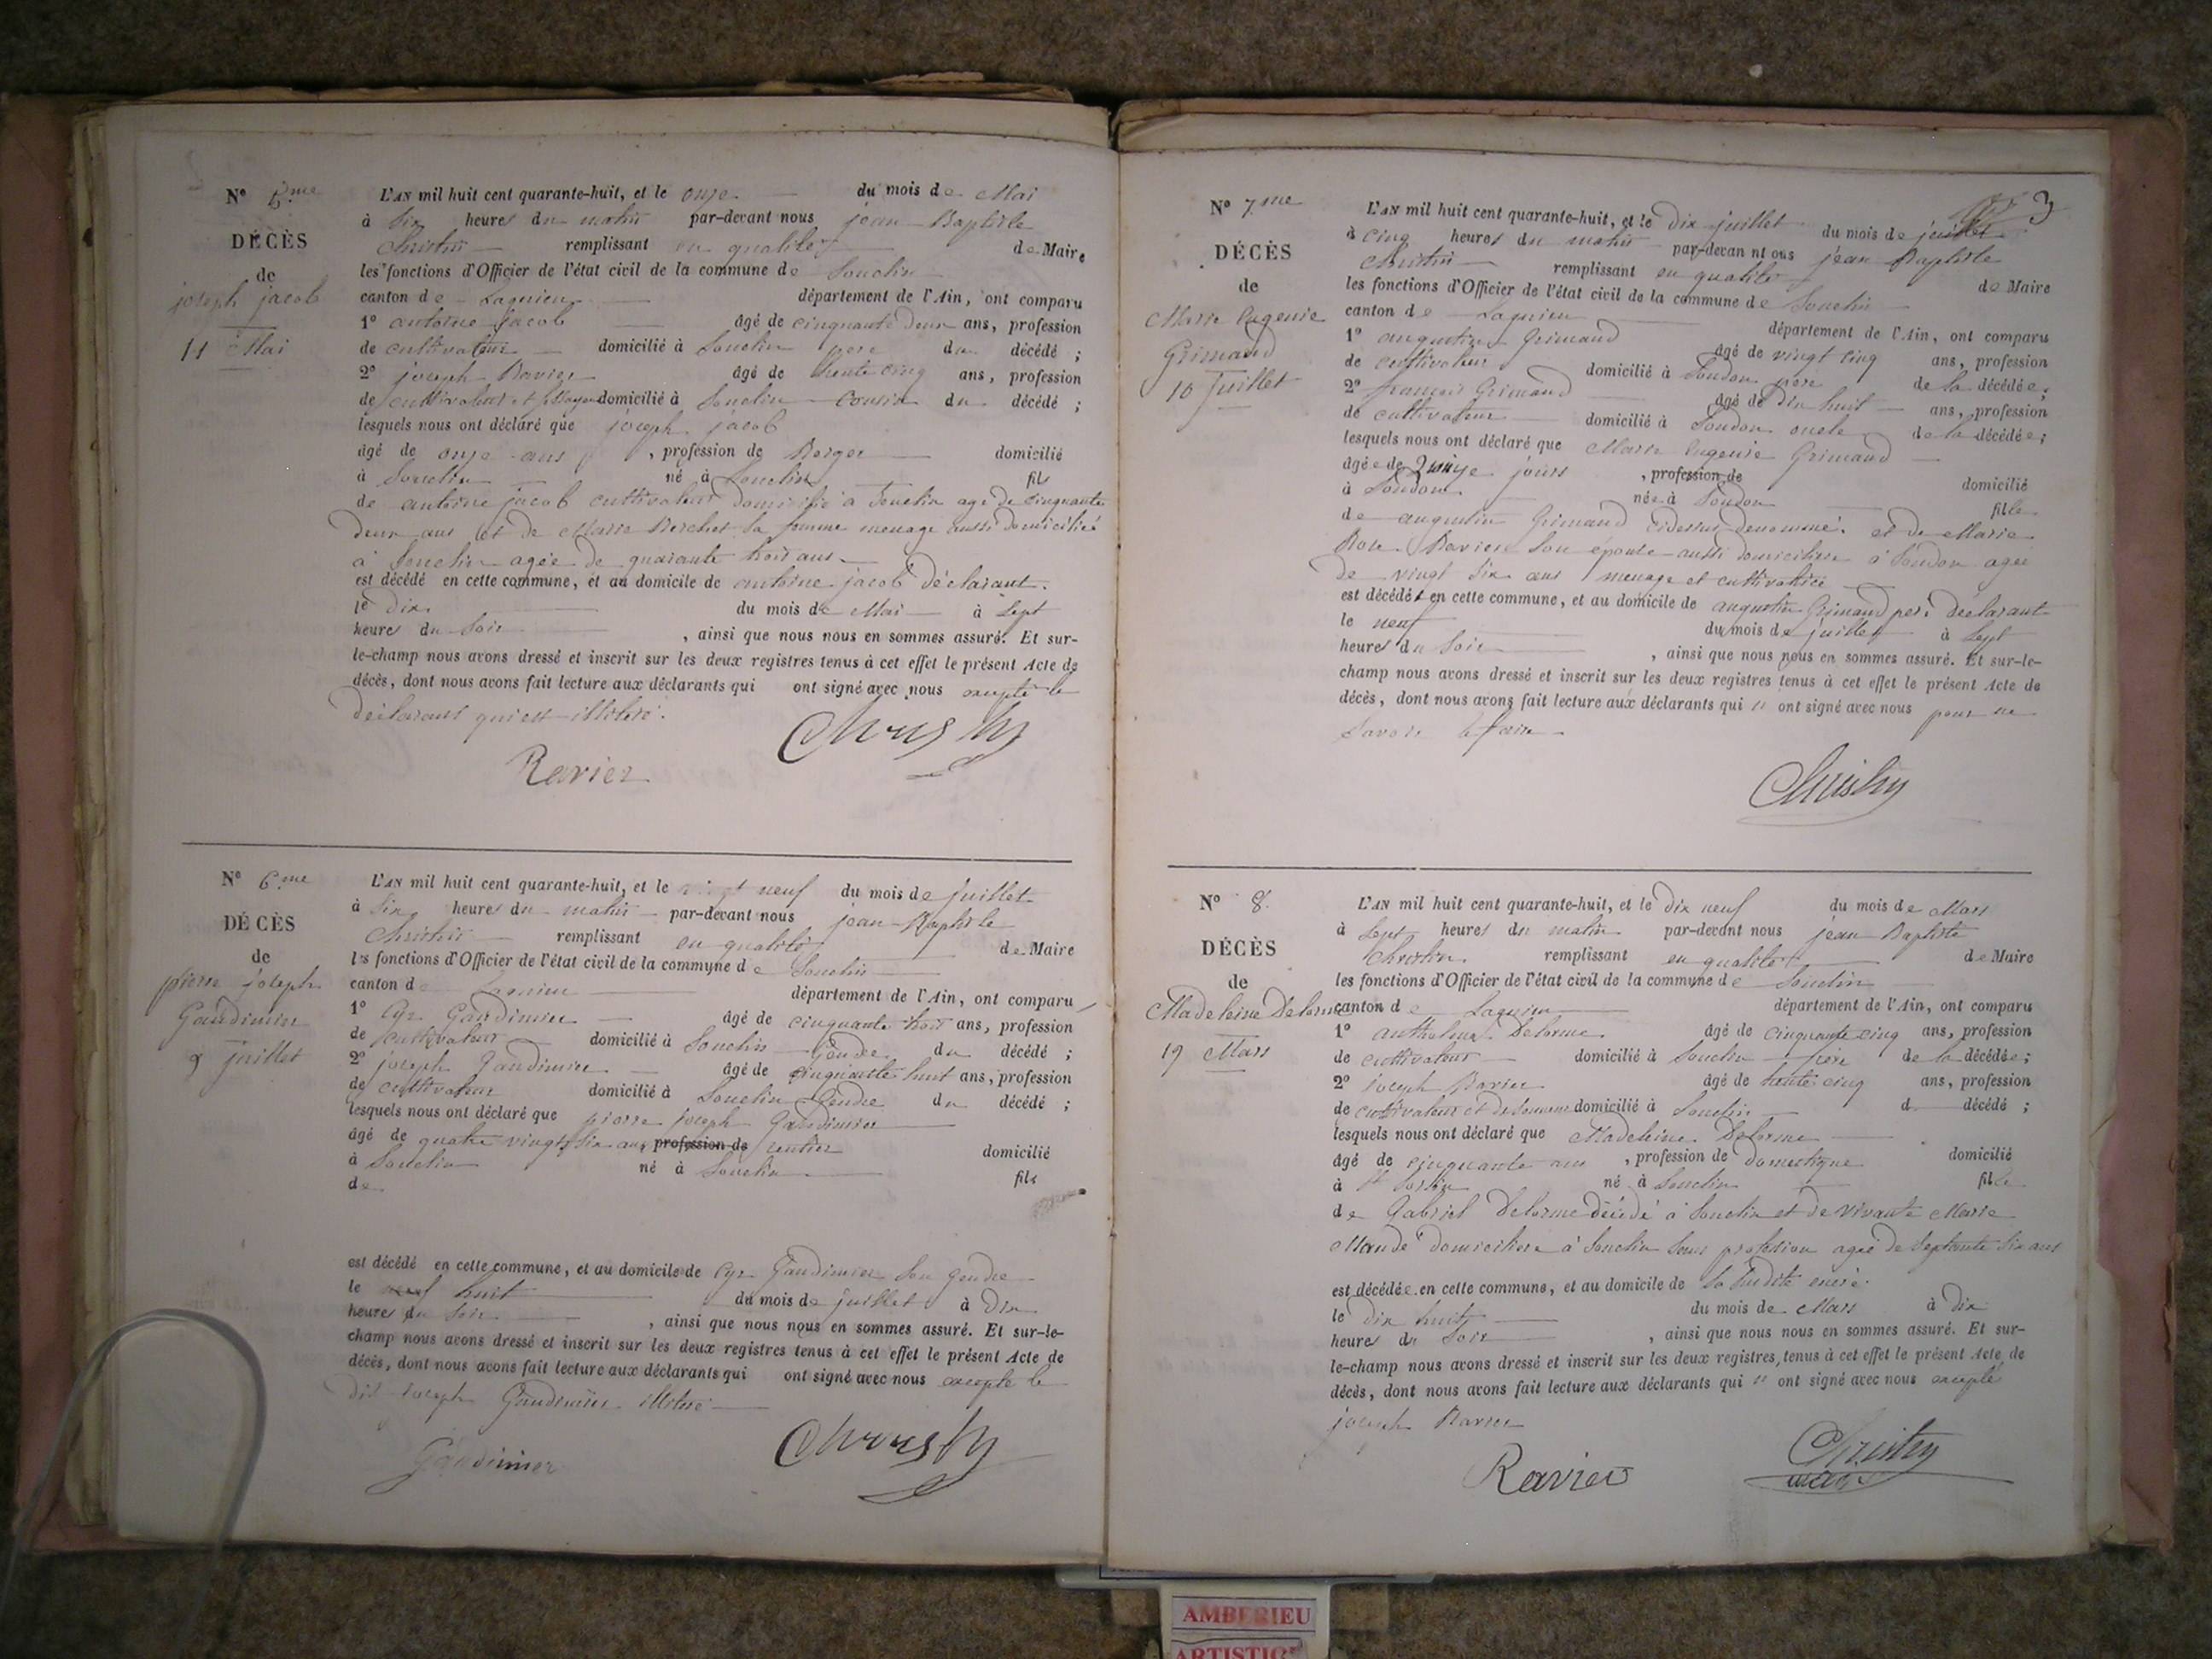 Nº 5me
DÉCÈS
de
joseph jacob
11 Mai
L'AN mil huit cent quarante-huit, et le onze du mois de Mai
à Six heures du matin par-devant nous jean Baptiste
Christin remplissant en qualité de Maire
les fonctions d'Officier de l'état civil de la commune de Souclin
canton de Lagnieu département de l'Ain, ont comparu
1º antoine Jacob âgé de cinquante Deux ans, profession
de cultivateur domicilié à Souclin pere du décédé ;
2º joseph Ravier âgé de trente cinq ans, profession
de cultivateur et domicilié à Souclin Cousin du décédé ;
lesquels nous ont déclaré que joseph jacob
âgé de onze ans , profession de Berger domicilié
à Souclin né à Souclin fils
de antoine jacob cultivateur domicilié à Souclin agé de cinquante
Deux ans et de Marie Berchet Sa femme menage aussi domiciliée
à Souclin agée de quarante trois ans
est décédé en cette commune, et au domicile de antoine jacob déclarant.
le Dix du mois de Mai à Sept
heures du Soir , ainsi que nous nous en sommes assuré. Et sur-
le-champ nous avons dressé et inscrit sur les deux registres tenus à cet effet le présent Acte de
décès, dont nous avons fait lecture aux déclarants qui ont signé avec nous excepté le
déclarant qui est illitéré.
Ravier Christin
Nº 6me
DÉCÈS
de
pierre joseph
Gaudimier
9 juillet
L'AN mil huit cent quarante-huit, et le neuf du mois de juillet
à Six heures du matin par-devant nous jean Baptiste
Christin remplissant en qualité de Maire
les fonctions d'Officier de l'état civil de la commune de Souclin
canton de Lagnieu département de l'Ain, ont comparu
1º Cyr Gaudimier âgé de cinquante trois ans, profession
de cultivateur domicilié à Souclin Gendre du décédé ;
2º joseph Gaudimier âgé de cinquante huit ans, profession
de cultivateur domicilié à Souclin Gendre du décédé ;
lesquels nous ont déclaré que pierre joseph Gaudimier
âgé de quatre vingt Six ans, profession de rentier domicilié
à Souclin né à Souclin fils
de
est décédé en cette commune, et au domicile de Cyr Gaudimier Son Gendre
le neuf huit du mois de juillet à Dix
heures du Soir , ainsi que nous nous en sommes assuré. Et sur-le-
champ nous avons dressé et inscrit sur les deux registres tenus à cet effet le présent Acte de
décès, dont nous avons fait lecture aux déclarants qui ont signé avec nous excepté le
dit Joseph Gaudimier illitéré
Gaudimier Christin
3
Nº 7me
DÉCÈS
de
Marie Eugenie
Grimaud
10 Juillet
L'AN mil huit cent quarante-huit, et le Dix juillet du mois de juillet
à cinq heures du matin par-devan nt ous jean Baptiste
Christin remplissant en qualité de Maire
les fonctions d'Officier de l'état civil de la commune de Souclin
canton de Lagnieu département de l'Ain, ont comparu
1º augustin Grimaud âgé de vingt cinq ans, profession
de cultivateur domicilié à Soudon pere de la décédée ;
2º françois Grimaud âgé de Dix huit ans, profession
de cultivateur domicilié à Soudon oncle de la décédée ;
lesquels nous ont déclaré que Marie Eugenie Grimaud
âgée de Quinze jours , profession de domicilié
à Soudon née à Soudon fille
de augustin Grimaud Cidessus denommé et de Marie
Rose Ravier Son épouse aussi domiciliere à Soudon agée
de vingt Six ans menage et cultivatrice
est décédée en cette commune, et au domicile de augustin Grimaud pere déclarant
le neuf du mois de juillet à Sept
heures du Soir , ainsi que nous nous en sommes assuré. Et sur-le-
champ nous avons dressé et inscrit sur les deux registres tenus à cet effet le présent Acte de
décès, dont nous avons fait lecture aux déclarants qui n ont signé avec nous pour ne
Savoir le faire
Christin
Nº 8
DÉCÈS
de
Madeleine Delorme
19 Mars
L'AN mil huit cent quarante-huit, et le Dix neuf du mois de Mars
à Sept heures du matin par-devant nous jean Baptiste
Christin remplissant en qualité de Maire
les fonctions d'Officier de l'état civil de la commune de Souclin
canton de Lagnieu département de l'Ain, ont comparu
1º Delorme âgé de cinquante cinq ans, profession
de cultivateur domicilié à Souclin frère de la décédée ;
2º joseph Ravier âgé de trente cinq ans, profession
de cultivateur et domicilié à Souclin d décédé ;
lesquels nous ont déclaré que Madeleine Delorme
âgé de cinquante ans , profession de domestique domicilié
à St Sorlin né à Souclin fille
de Gabriel Delorme décédé à Souclin et de vivante Marie
domiciliere à Souclin Sans profession agée de Septante Six ans
est décédée en cette commune, et au domicile de Sa Sudite
le Dix huit du mois de Mars à Dix
heures du Soir , ainsi que nous nous en sommes assuré. Et sur-
le-champ nous avons dressé et inscrit sur les deux registres tenus à cet effet le présent Acte de
décès, dont nous avons fait lecture aux déclarants qui n ont signé avec nous excepté
joseph Ravier
Ravier Christin
maire
AMBERIEU